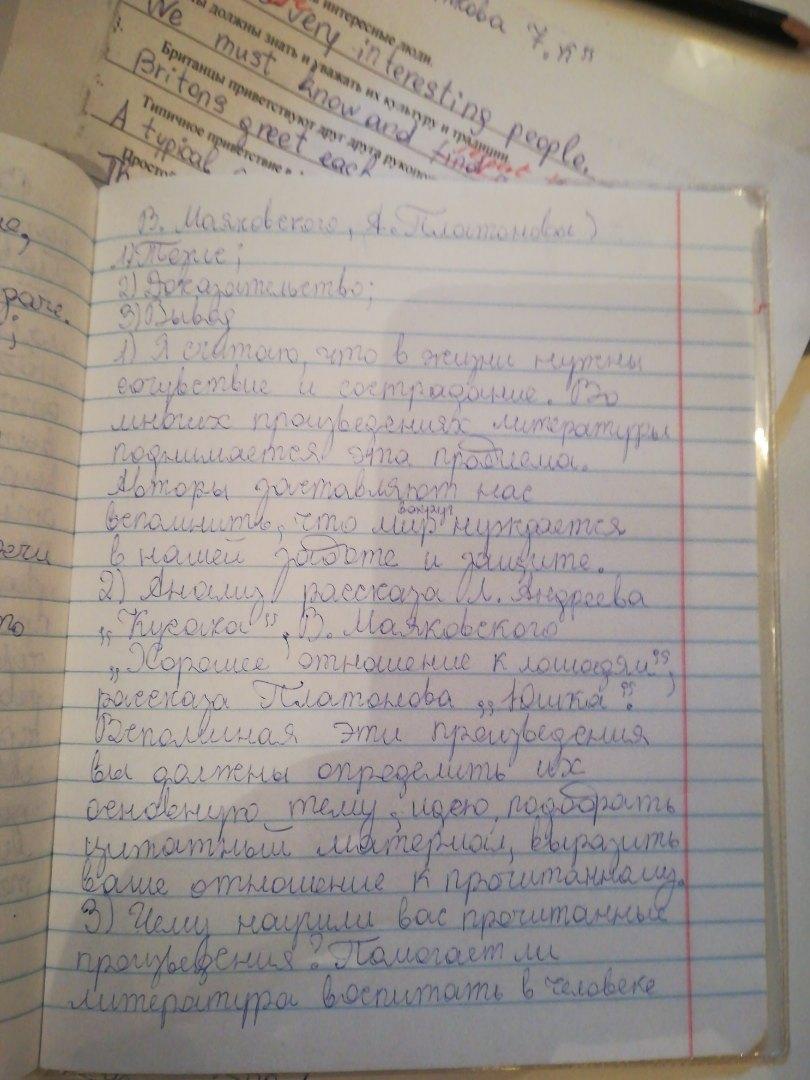 нкова 7 кл
интересные люди.
very interesting people.
ны должны знать и уважать их культуру и традиции.
We must know and
Британцы приветствуют друг друга рукопо
Britons greet each
Типичное приветствие
A typical
Просто
Th
В. Маяковского, А. Платонова)
1) Тезис;
2) Доказательство;
3) Вывод
1) Я считаю, что в жизни нужны
сочувствие и сострадание. Во
многих произведениях литературы
поднимается эта проблема.
Авторы заставляют нас
вокруг
вспомнить, что мир нуждается
в нашей заботе и защите.
2) Анализ рассказа Л. Андреева
„Кусака”, В. Маяковского
„Хорошее отношение к лошадям”,
рассказа Платонова „Юшка”.
Вспоминая эти произведения
вы должны определить их
основную тему, идею, подобрать
цитатный материал, выразить
ваше отношение к прочитанному.
3) Чему научили вас прочитанные
произведения? Помогает ли
литература воспитать в человеке
даче.